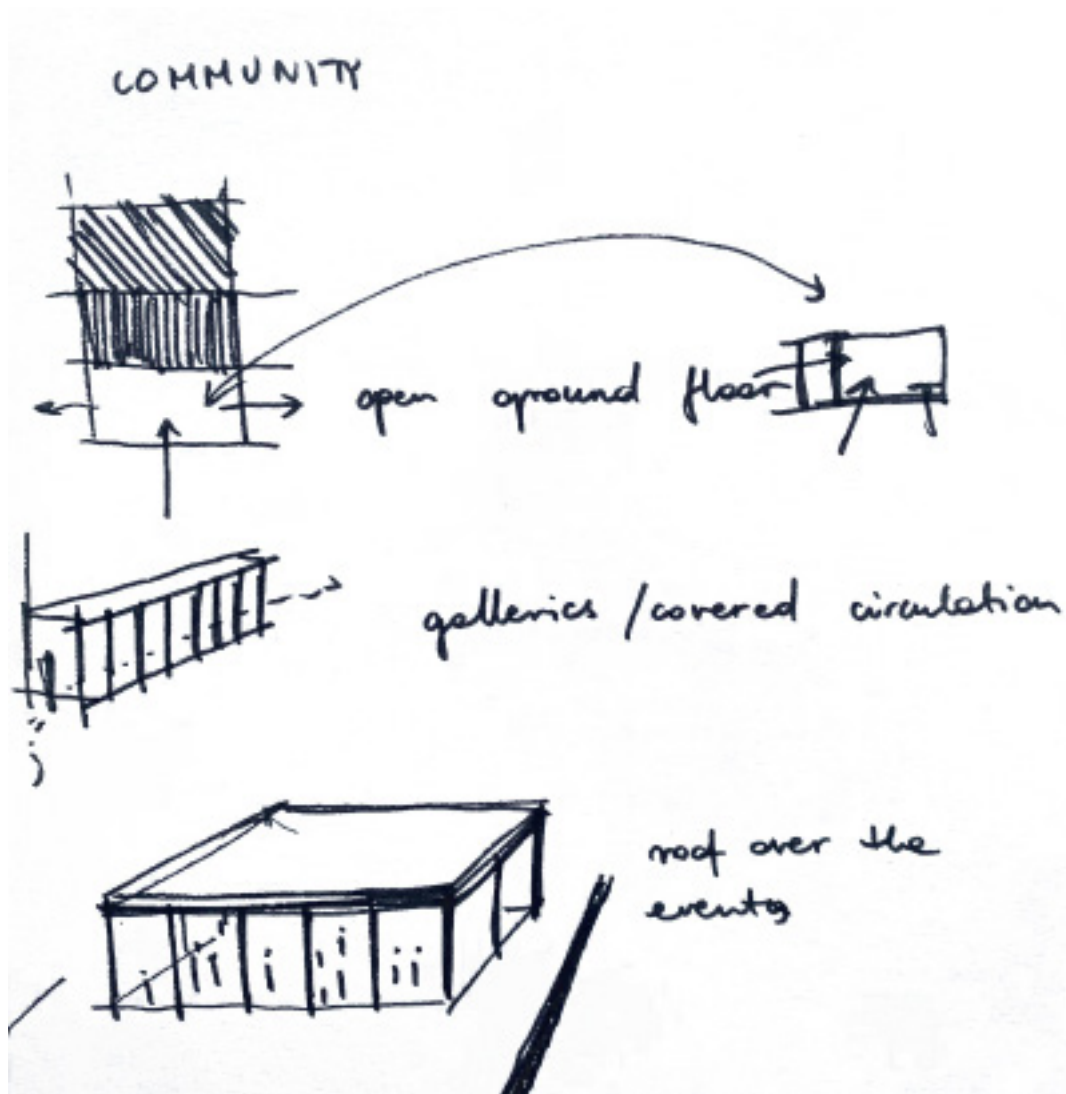 COMMUNITY
open ground floor
galleries / covered circulation
roof over the
events